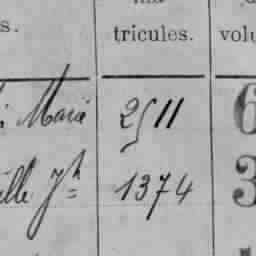 s.
tricules. volu
Marie 2511 6
ille Jh 1374 3